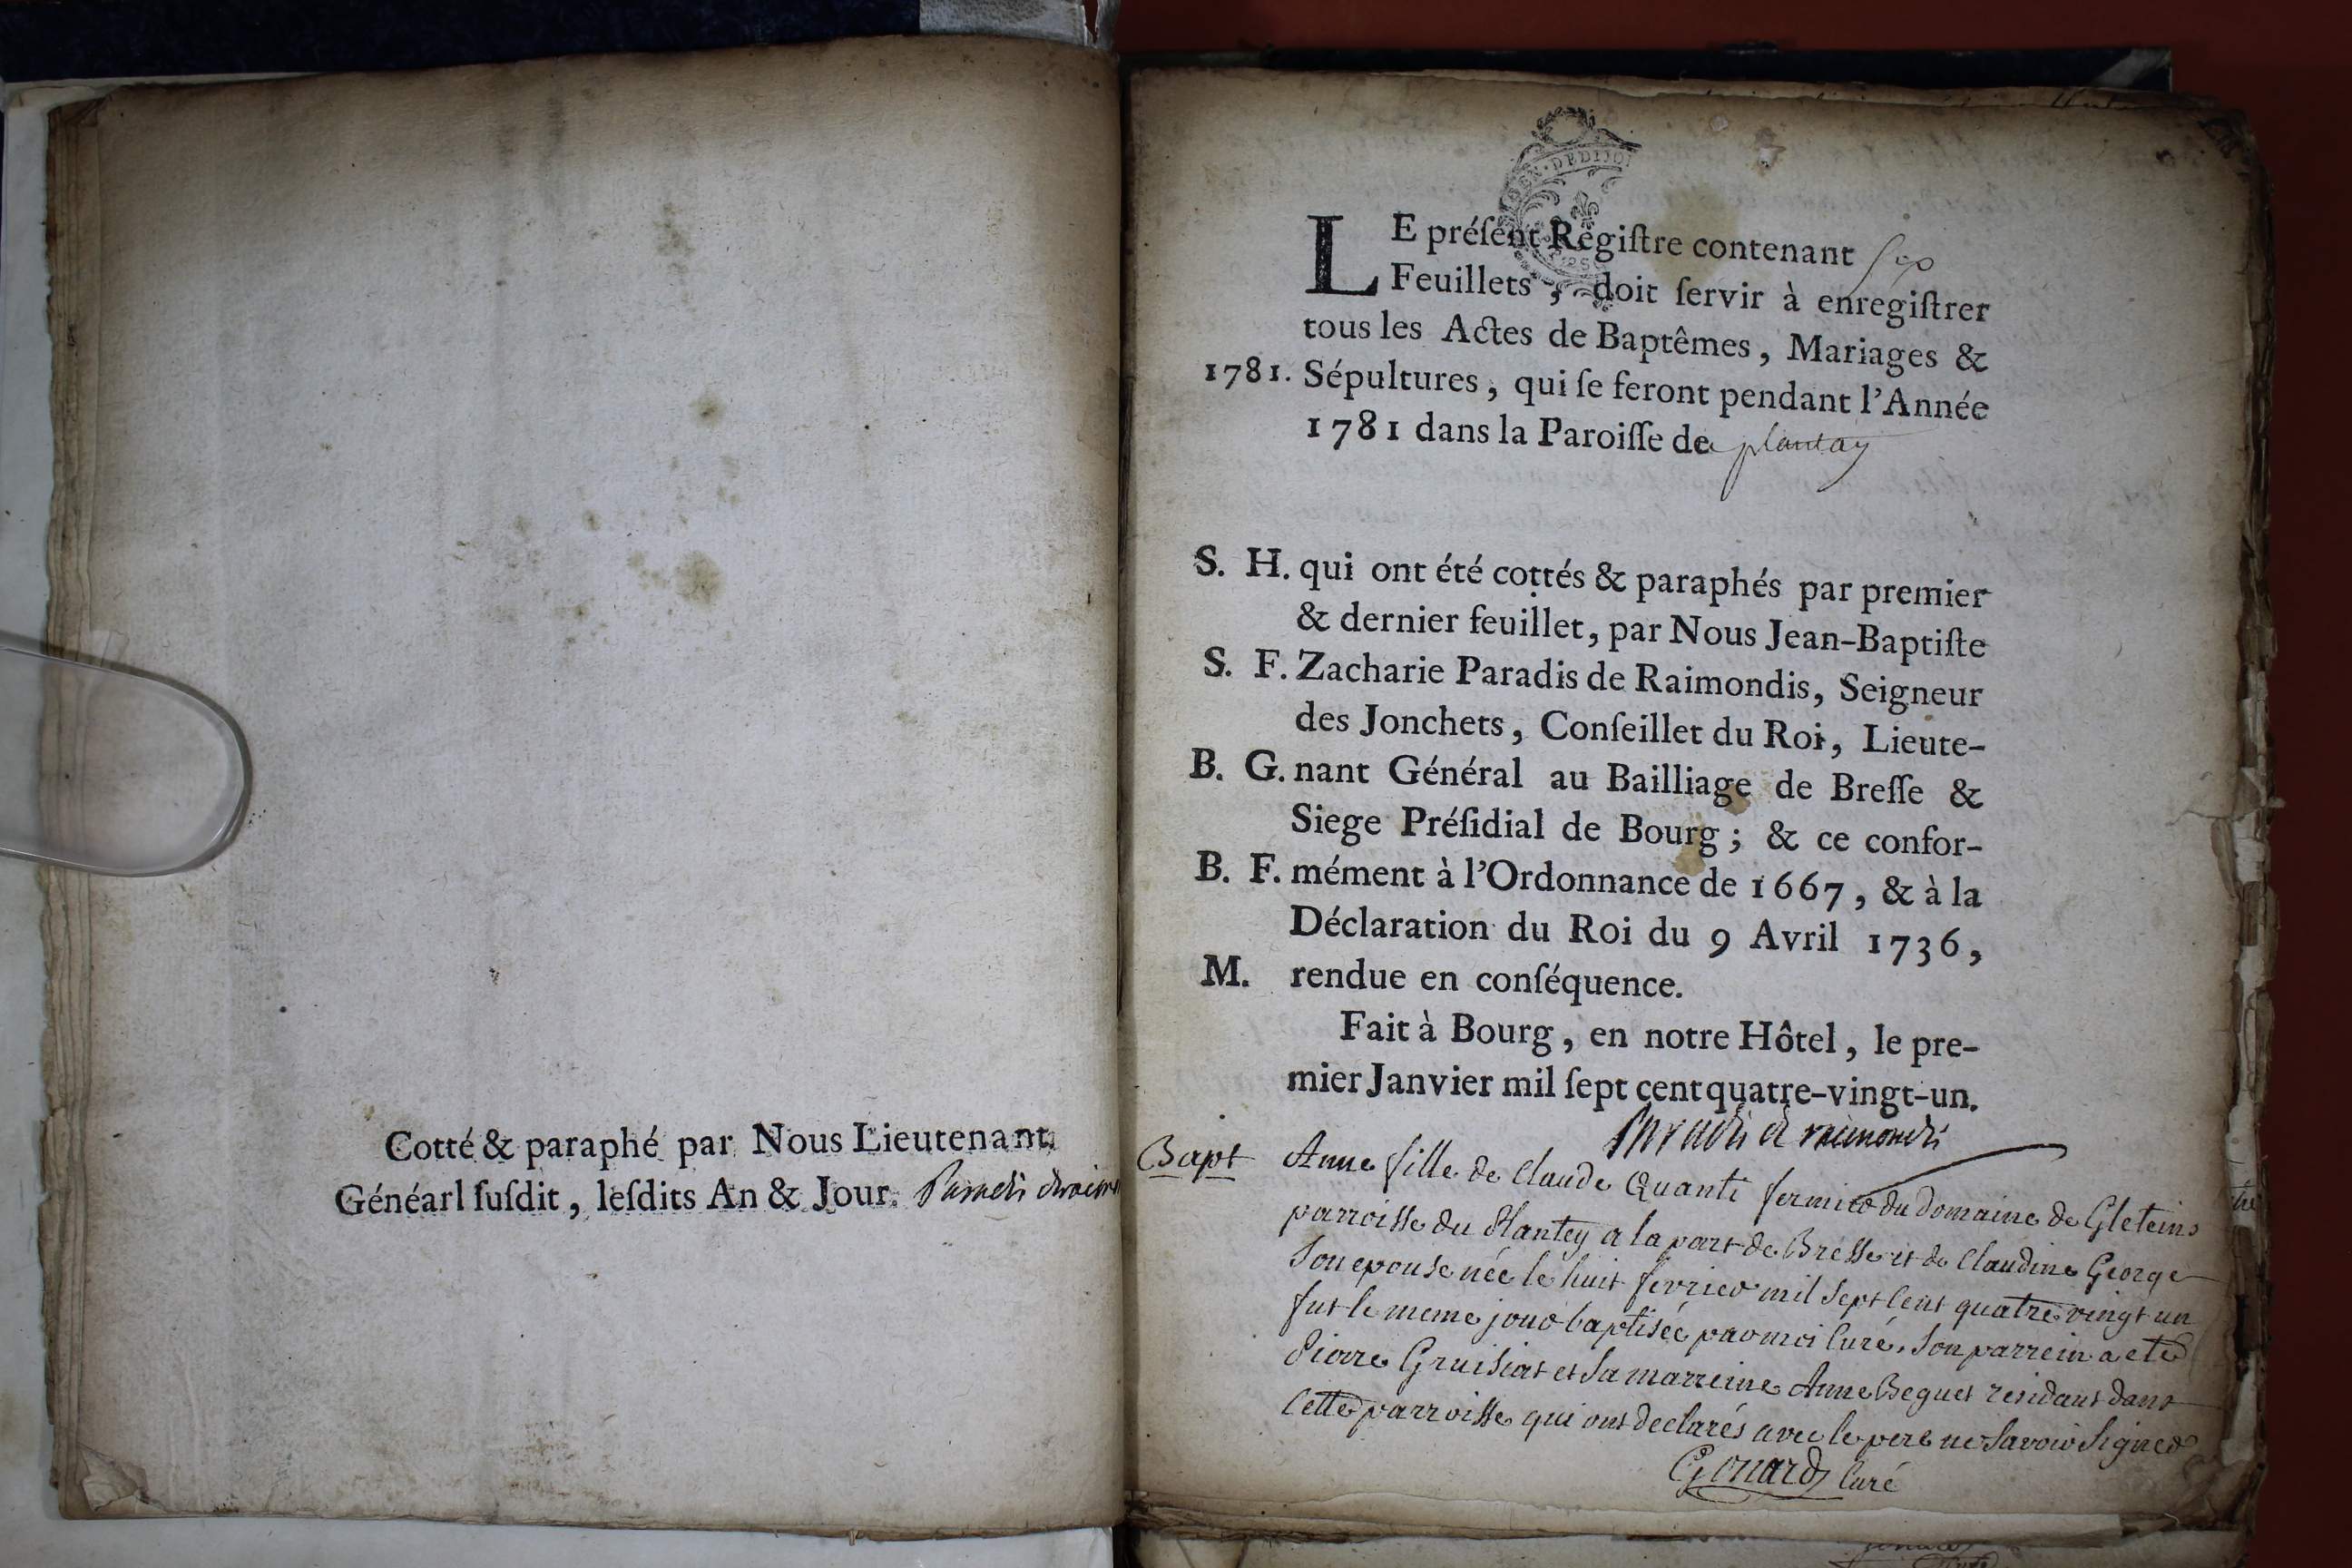 Cotté & paraphé par Nous Lieutenant
Généarl ſuſdit, leſdits An & Jour.
LE préſent Régiſtre contenant
Feuillets, doit ſervir à enrégiſtrer
tous les Actes de Baptêmes, Mariages &
1781. Sépultures, qui ſe feront pendant l'Année
1781 dans la Paroiſſe de plantay
S. H. qui ont été cottés & paraphés par premier
& dernier feuillet, par Nous Jean-Baptiſte
S. F. Zacharie Paradis de Raimondis, Seigneur
des Jonchets, Conſeillet du Roi, Lieute-
B. G. nant Général au Bailliage de Breſſe &
Siege Préſidial de Bourg; & ce confor-
B. F. mément à l'Ordonnance de 1667, & à la
Déclaration du Roi du 9 Avril 1736,
M. rendue en conſéquence.
Fait à Bourg, en notre Hôtel, le pre-
mier Janvier mil ſept cent quatre-vingt-un.
Paradis de raimondis
Bapt Anne fille de Claude Quanti fermier du Domaine de Gleteins
parroisse du Plantey a la part de Bresse et de Claudine George
Son epouse née le huit fevrier mil Sept Cent quatre vingt un
fut le meme jour baptisée par moi Curé. Son parrein a eté
Pierre Gruisiat et Sa marreine Anne Beguet residant dans
Cette parroisse qui ont declarés avec le pere ne Savoir Signer
Gonard Curé